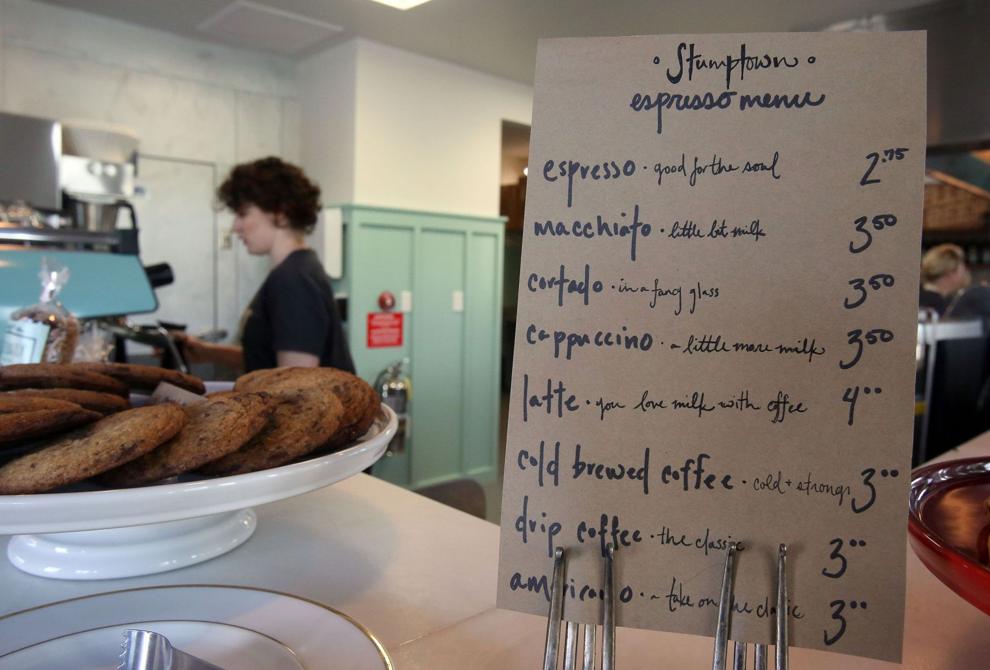 · Stumptown ·
espresso menu
espresso · good for the soul 2.75
macchiato · little bit milk 3 50
cortado · in a fancy glass 3 50
cappuccino · a little more milk 3 50
latte · you love milk with coffee 4 00
cold brewed coffee · cold + strong 3 00
drip coffee · the classic 3 00
americano · a take on the classic 3 00